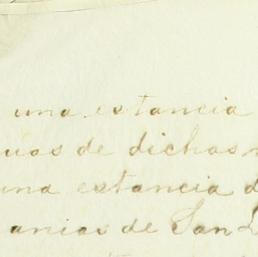 una estancia
uas de dichas
una estancia d
anias de San L